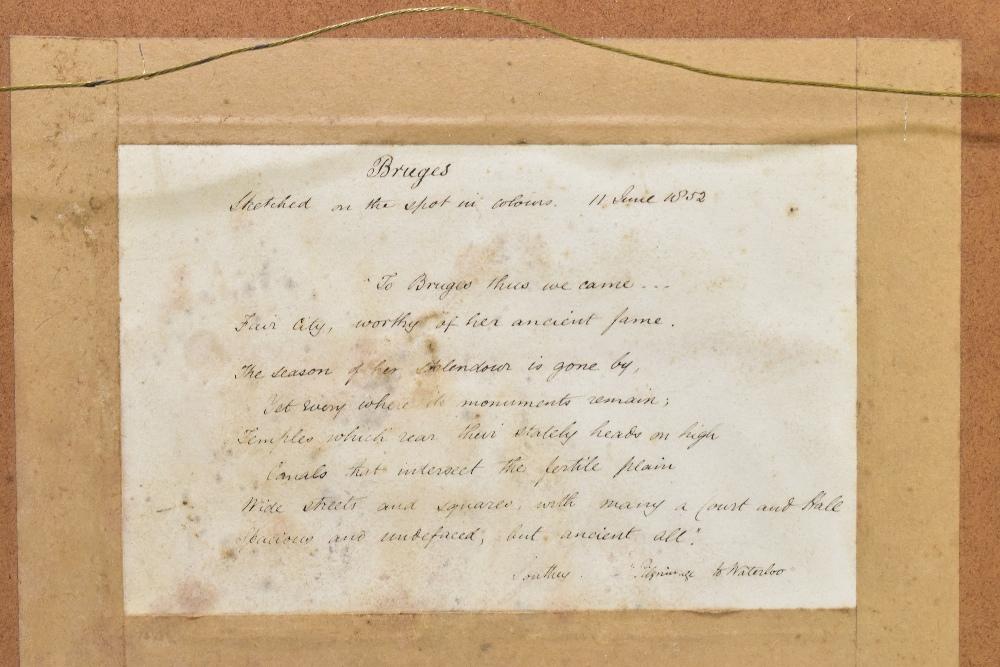 Bruges
Sketched on the spot in colours. 11 June 1852
"To Bruges thus we came ...
Fair City, worthy of her ancient fame.
The season of her splendour is gone by,
Yet every where its monuments remain;
Temples which rear their stately heads on high
Canals that intersect the fertile plain
Wide streets and squares, with many a Court and Hall
Spacious and undefaced, but ancient all".
Southey. Pilgrimage to Waterloo